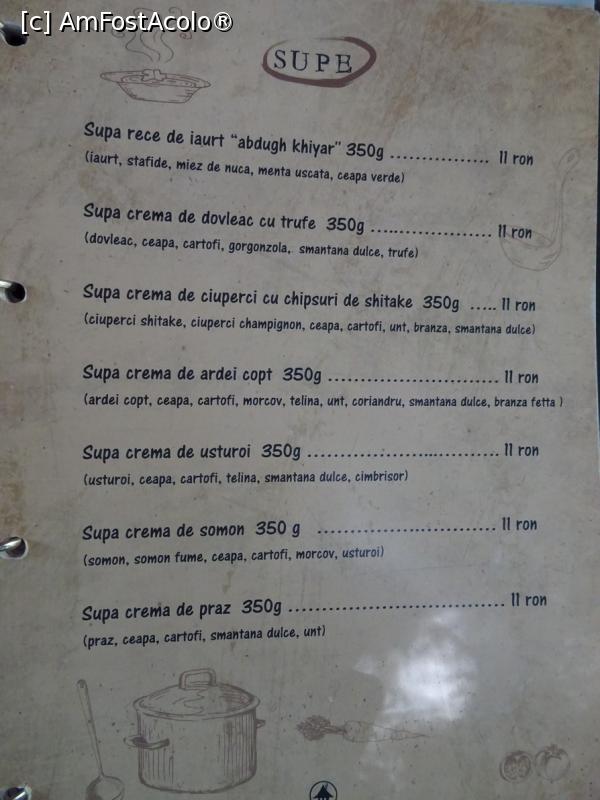 [c] AmFostAcolo®
SUPE
Supa rece de iaurt “abdugh khiyar” 350g ................ 11 ron
(iaurt, stafide, miez de nuca, menta uscata, ceapa verde)
Supa crema de dovleac cu trufe 350g ..................... 11 ron
(dovleac, ceapa, cartofi, gorgonzola, smantana dulce, trufe)
Supa crema de ciuperci cu chipsuri de shitake 350g ..... 11 ron
(ciuperci shitake, ciuperci champignon, ceapa, cartofi, unt, branza, smantana dulce)
Supa crema de ardei copt 350g ............................ 11 ron
(ardei copt, ceapa, cartofi, morcov, telina, unt, coriandru, smantana dulce, branza fetta )
Supa crema de usturoi 350g ................................ 11 ron
(usturoi, ceapa, cartofi, telina, smantana dulce, cimbrisor)
Supa crema de somon 350 g .............................. 11 ron
(somon, somon fume, ceapa, cartofi, morcov, usturoi)
Supa crema de praz 350g .................................... 11 ron
(praz, ceapa, cartofi, smantana dulce, unt)